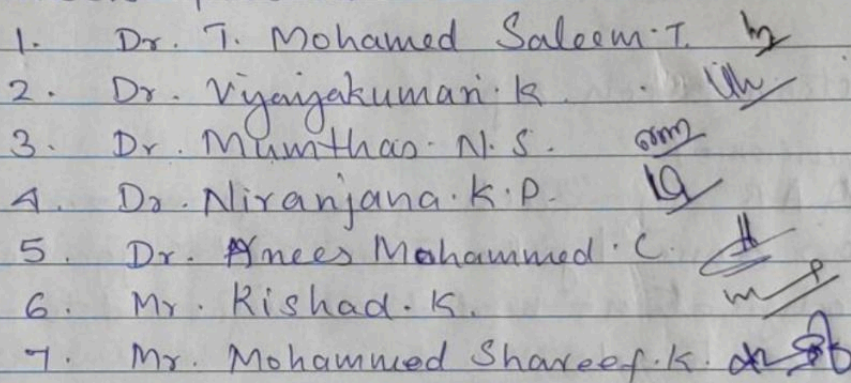 1. Dr. T. Mohamed Saleem. T.
2. Dr. Vijayakumari. K.
3. Dr. Mumthas. N. S.
4. Dr. Niranjana. K. P.
5. Dr. Anees Mohammed. C.
6. Mr. Rishad. K.
7. Mr. Mohammed Shareef. K.